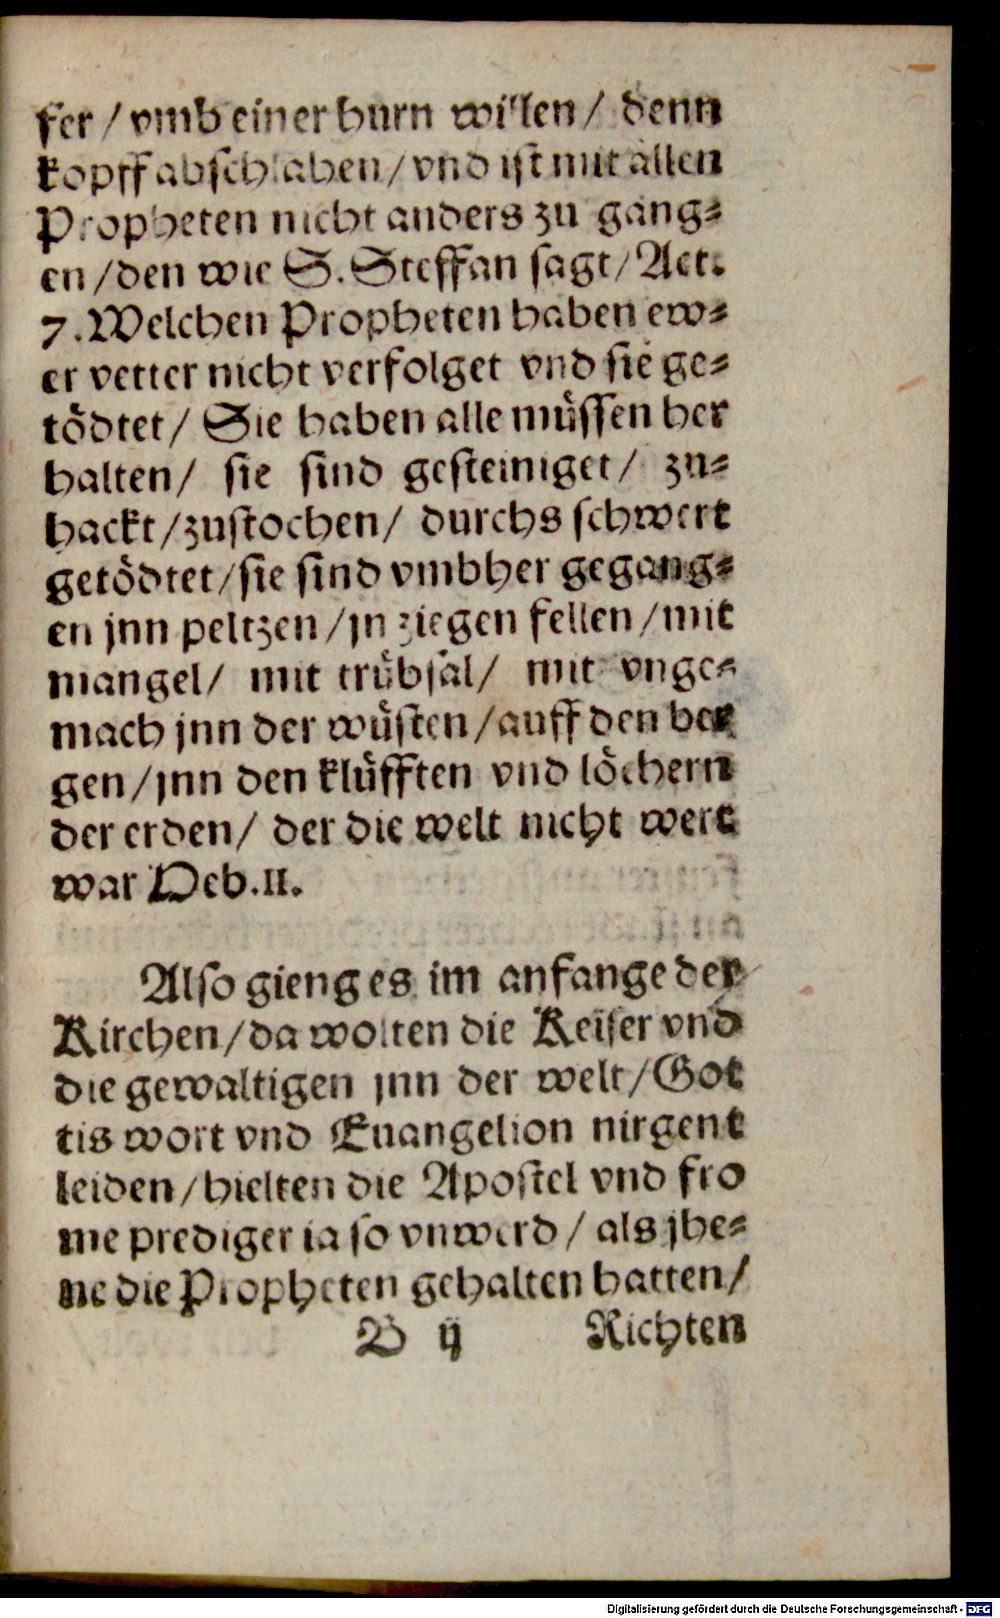 fer / vmb einer hurn willen / denn
kopff abschlahen / vnd ist mit allen
Propheten nicht anders zu gang⸗
en / den wie S. Steffan sagt / Act.
7. Welchen Propheten haben ew⸗
er vetter nicht verfolget vnd sie ge⸗
tödtet / Sie haben alle müssen her
halten / sie sind gesteiniget / zu⸗
hackt / zustochen / durchs schwert
getödtet / sie sind vmbher gegang⸗
en jnn peltzen / jn ziegen fellen / mit
mangel / mit trübsal / mit vnge⸗
mach jnn der wüsten / auff den ber
gen / jnn den klüfften vnd löchern
der erden / der die welt nicht wert
war Heb. 11.
Also gieng es im anfange der
Kirchen / da wolten die Keiser vnd
die gewaltigen jnn der welt / Got
tis wort vnd Euangelion nirgent
leiden / hielten die Apostel vnd fro
me prediger ia so vnwerd / als jhe⸗
ne die Propheten gehalten hatten /
B ij Richten
Digitalisierung gefördert durch die Deutsche Forschungsgemeinschaft - DFG